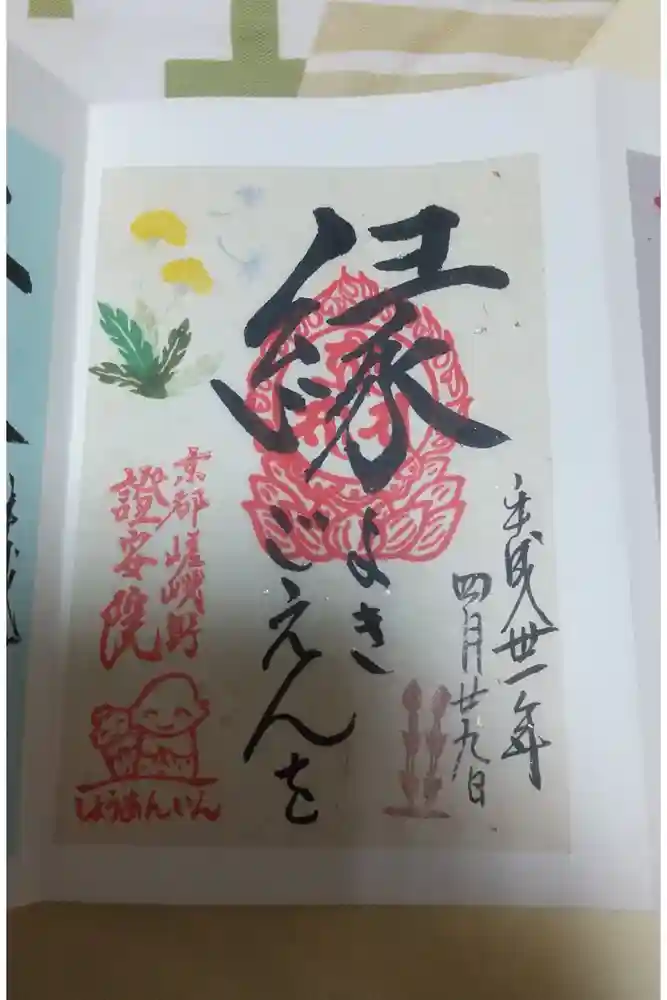 平成卅一年
四月廿九日
縁
よき
ごえんを
京都嵯峨野
證安院
しょうあんいん